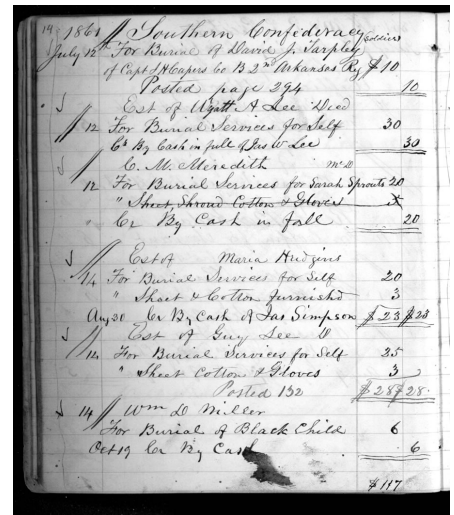 14 1861 Southern Confederacy soldiers
July 12th For Burial of David J. Tarpley
of Capt J H Capers Co B 2nd Arkansas Reg $10
Posted page 294 10
Est of Wyatt A Lee Died
12 For Burial Services for Self 30
Cr By Cash in full of Jas W Lee 30
C. M. Meredith
12 For Burial Services for Sarah Sprouts 20
" Sheet, Shroud Cotton & Gloves
" Cr By Cash in full 20
Est of Maria Hudgins
14 For Burial Services for Self 20
" Sheet & Cotton furnishd 3
Aug 30 Cr By Cash of Jas Simpson $23 $23
Est of Guy Lee D
14 For Burial Services for Self 25
" Sheet Cotton & Gloves 3
Posted 132 $28 $28
14 Wm D Miller
For Burial of Black Child 6
Oct 19 Cr By Cash 6
$117